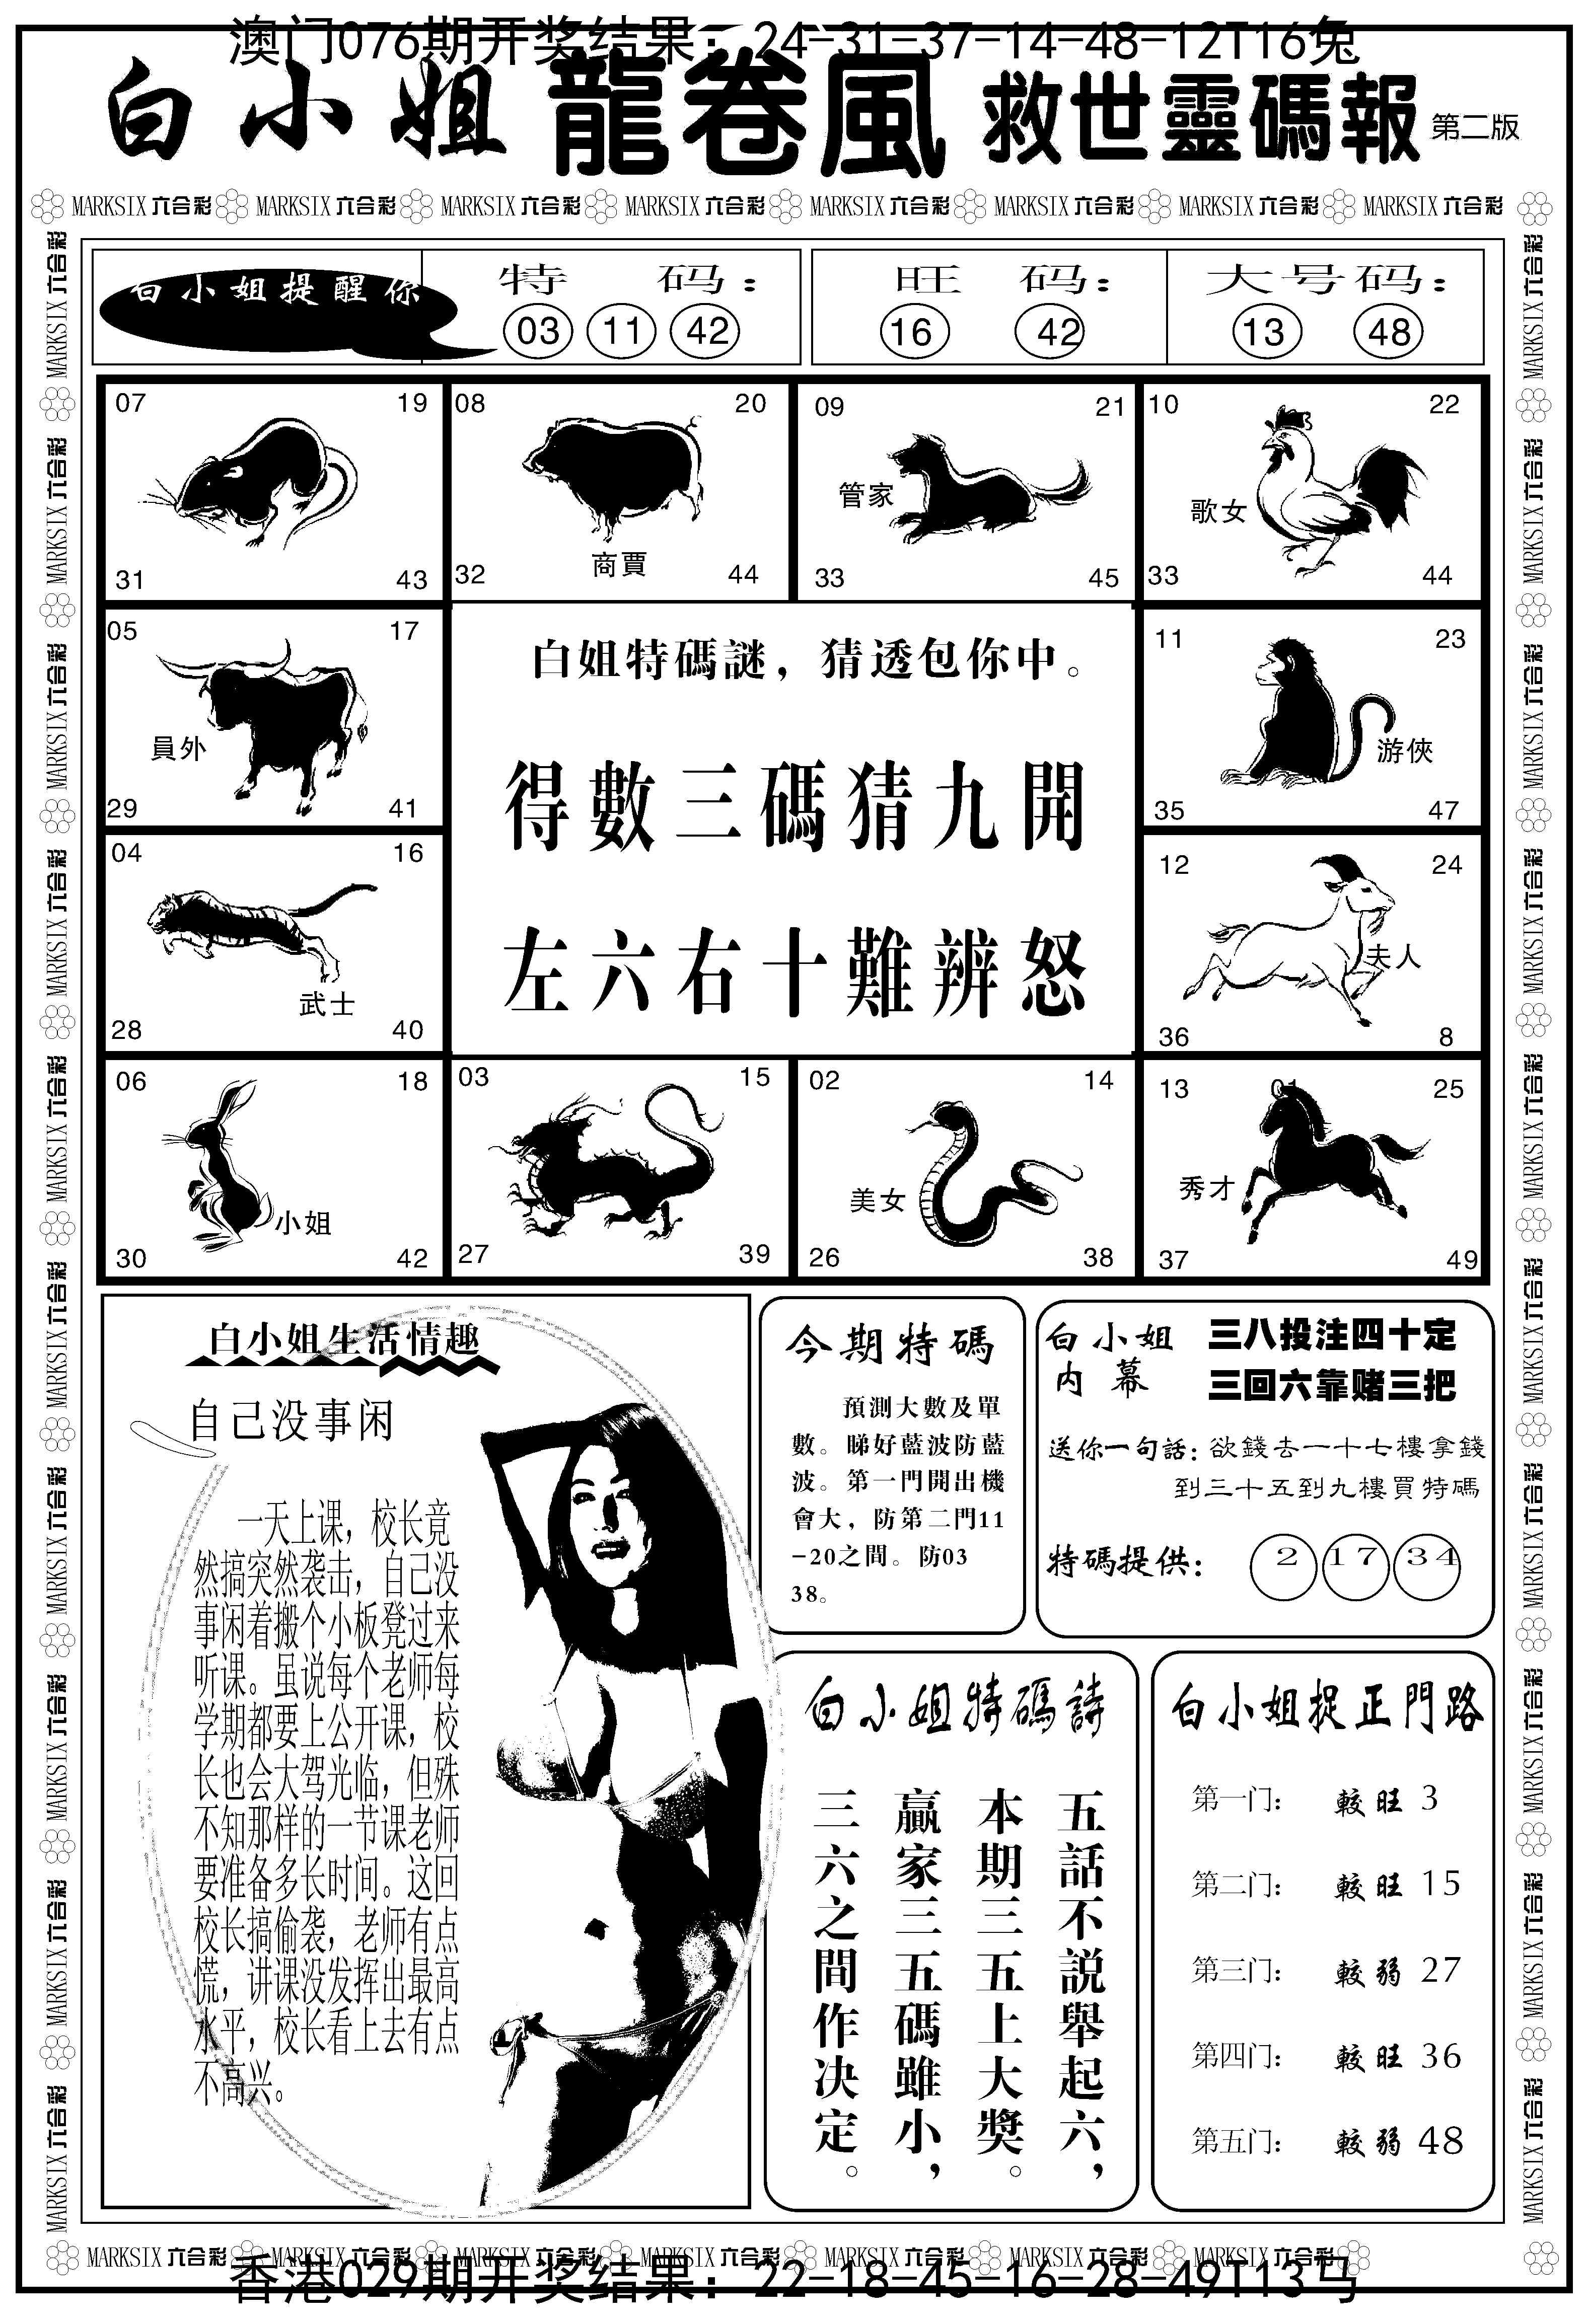 澳门076期开奖结果：24-31-37-14-48-12T16兔
白小姐 龍卷風 救世靈碼報 第二版
MARKSIX 六合彩 MARKSIX 六合彩 MARKSIX 六合彩 MARKSIX 六合彩 MARKSIX 六合彩 MARKSIX 六合彩 MARKSIX 六合彩 MARKSIX 六合彩
白小姐提醒你
特 码：
03 11 42
旺 码：
16 42
大号码：
13 48
07 19
31 43
08 20
商賈
32 44
09 21
管家
33 45
10 22
歌女
33 44
05 17
員外
29 41
白姐特碼謎，猜透包你中。
得數三碼猜九開
左六右十難辨怒
11 23
游俠
35 47
04 16
武士
28 40
12 24
夫人
36 8
06 18
小姐
30 42
03 15
27 39
02 14
美女
26 38
13 01 25
秀才
37 49
白小姐生活情趣
自己没事闲
一天上课，校长竟
然搞突然袭击，自己没
事闲着搬个小板凳过来
听课。虽说每个老师每
学期都要上公开课，校
长也会大驾光临，但殊
不知那样的一节课老师
要准备多长时间。这回
校长搞偷袭，老师有点
慌，讲课没发挥出最高
水平，校长看上去有点
不高兴。
今期特碼
預測大數及單
數。睇好藍波防藍
波。第一門開出機
會大，防第二門11
-20之間。防03
38。
白小姐
内幕
三八投注四十定
三回六靠赌三把
送你一句話：欲錢去一十七樓拿錢
到三十五到九樓買特碼
特碼提供： 2 17 34
白小姐特碼詩
五話不説舉起六，
本期三五上大獎。
贏家三五碼雖小，
三六之間作决定。
白小姐捉正門路
第一门： 較旺 3
第二门： 較旺 15
第三门： 較弱 27
第四门： 較旺 36
第五门： 較弱 48
MARKSIX 六合彩 MARKSIX 六合彩 MARKSIX 六合彩 MARKSIX 六合彩 MARKSIX 六合彩 MARKSIX 六合彩 MARKSIX 六合彩
香港029期开奖结果：22-18-45-16-28-49T13马